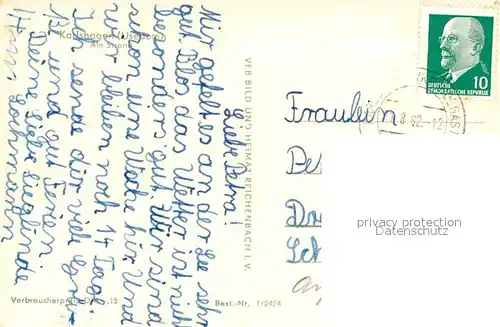 Karlshagen (Usedom)
Am Strand
Liebe Petra!
Mir gefällt es an der See sehr
gut. Blos das Wetter ist nicht
besonders gut. Wir sind
schon eine Woche hir. Und
wir bleiben noch 14 Tage.
Ich sende dir viele Grü-
ße und gut Ferien
Deine liebe Sieglinde
VEB BILD UND HEIMAT REICHENBACH I. V.
Verbraucherpreis DM -,15
Best.-Nr. 1/2424
10
DEUTSCHE
DEMOKRATISCHE REPUBLIK
8.62.-12
Fräulein
Pe
Dr
privacy protection